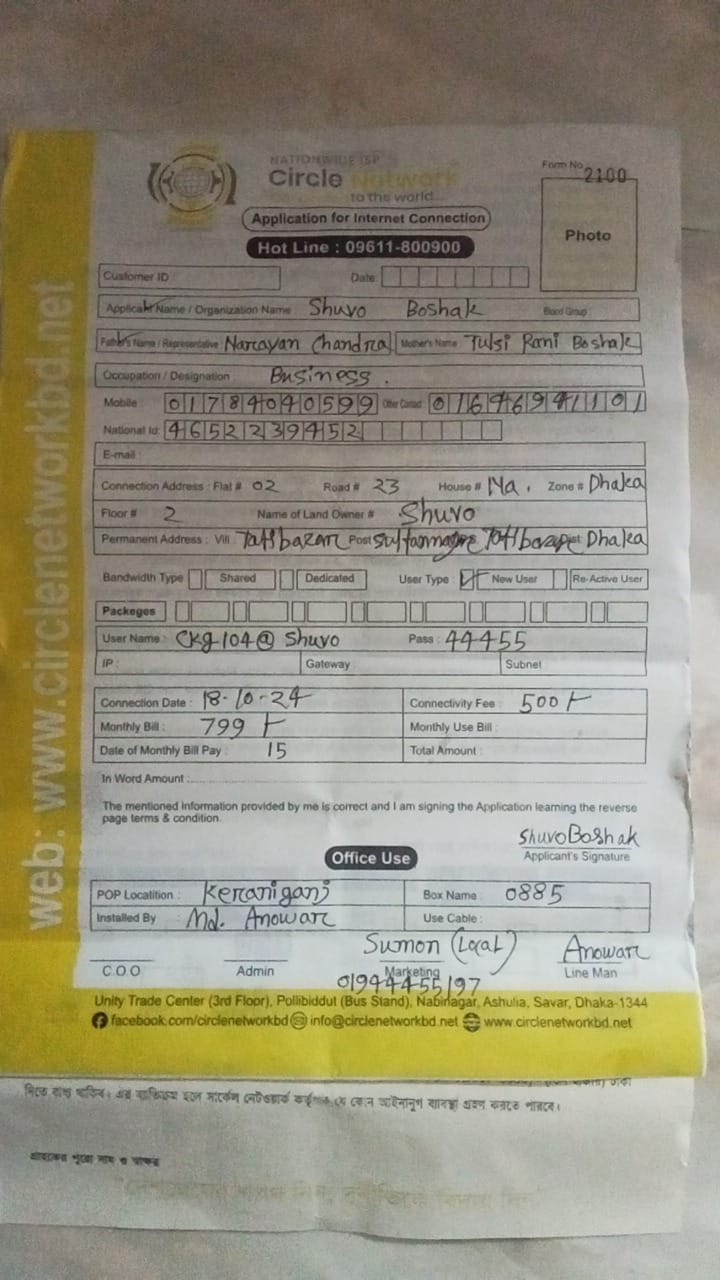 NATIONWIDE ISP
Circle Network
to the world
Form No. 2100
Application for Internet Connection
Hot Line : 09611-800900
Photo
Customer ID :
Date:
Applicant Name / Organization Name Shuvo Boshak Blood Group:
Father's Name / Representative Narayan Chandra Mother's Name Tulsi Rani Boshak
Occupation / Designation : Business.
Mobile : 01784040599 Other Contact 01646941101
National Id: 4652239452
E-mail :
Connection Address : Flat # 02 Road # 23 House # Na. Zone # Dhaka
Floor # 2 Name of Land Owner # Shuvo
Permanent Address : Vill : Post Dhaka
Bandwidth Type Shared Dedicated User Type : New User Re-Active User
Packeges
User Name : Ckg104@Shuvo Pass : 44455
IP : Gateway Subnet
Connection Date : 18-10-24 Connectivity Fee : 500
Monthly Bill : 799 Monthly Use Bill :
Date of Monthly Bill Pay : 15 Total Amount :
In Word Amount :
The mentioned information provided by me is correct and I am signing the Application learning the reverse
page terms & condition.
Shuvo Boshak
Applicant's Signature
Office Use
POP Locatition : Keraniganj Box Name : 0885
Installed By : Md. Anowar Use Cable :
Sumon (Local) Anowar
C.O.O Admin Marketing Line Man
01944455197
Unity Trade Center (3rd Floor), Pollibiddut (Bus Stand), Nabinagar, Ashulia, Savar, Dhaka-1344
facebook.com/circlenetworkbd info@circlenetworkbd.net www.circlenetworkbd.net
web: www.circlenetworkbd.net
দিতে বাধ্য থাকিব। এর ব্যতিক্রম হলে সার্কেল নেটওয়ার্ক কর্তৃপক্ষ যে কোন আইনানুগ ব্যবস্থা গ্রহণ করতে পারবে।
গ্রাহকের পুরো নাম ও স্বাক্ষর